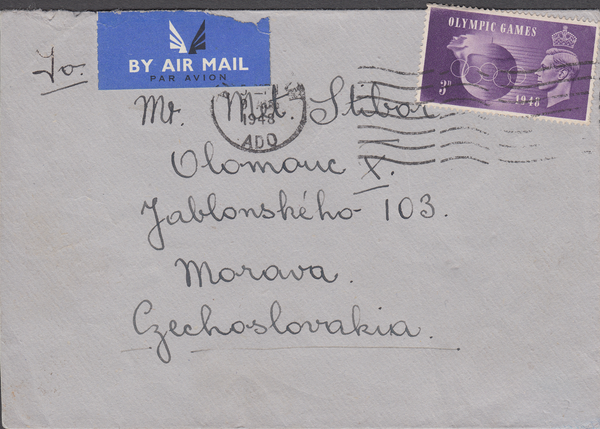 OLYMPIC GAMES
3D
1948
BY AIR MAIL
PAR AVION
To.
1948
ADO
Mr. Stibor
Olomouc X.
Jablonského 103.
Morava.
Czechoslovakia.